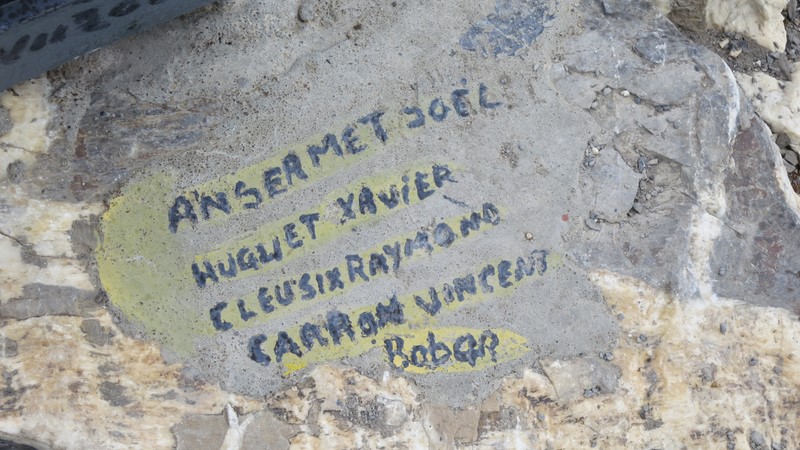 ANSERMET JOËL
HUGUET XAVIER
CLEUSIX RAYMOND
CARRON VINCENT
BobGR